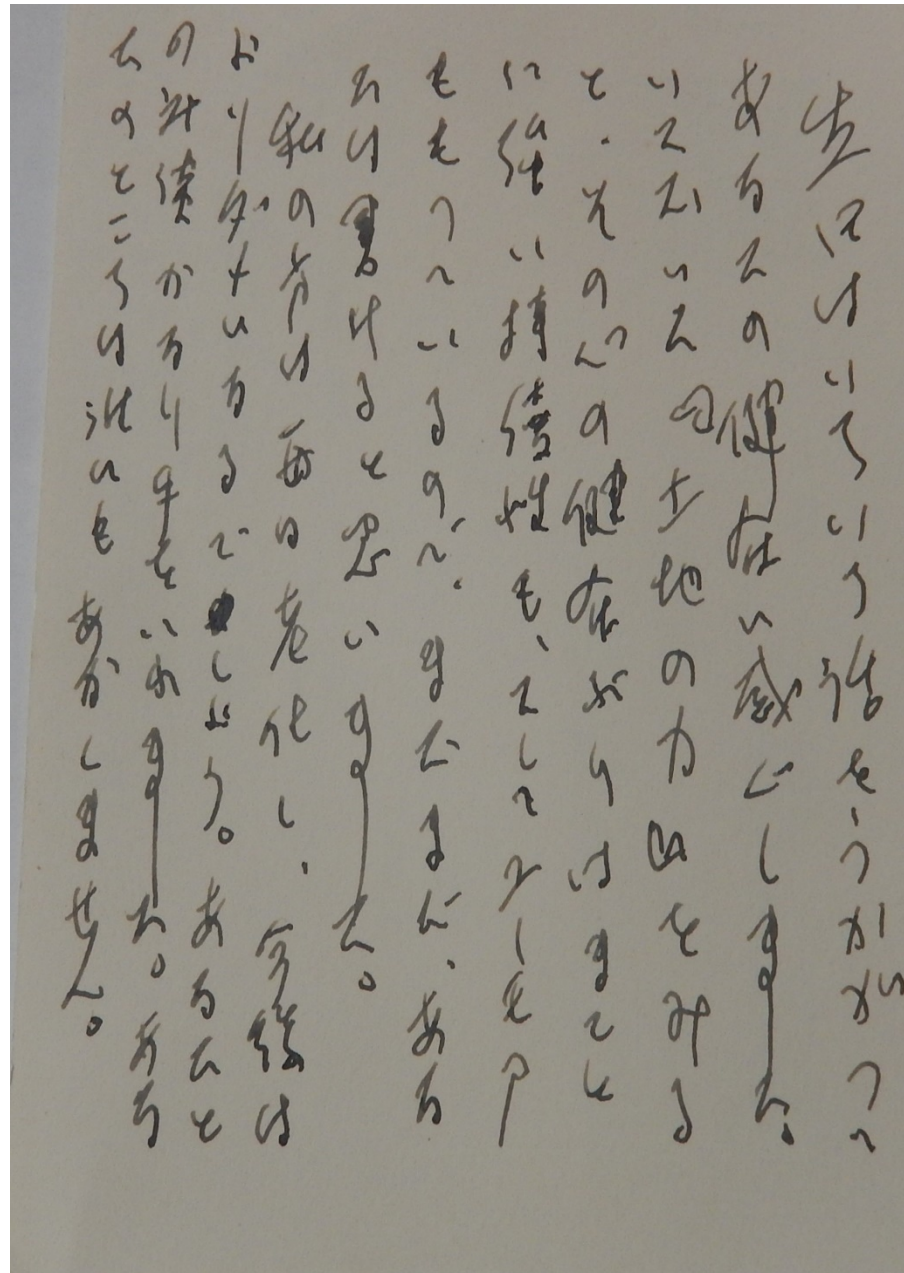 先日はいろいろ話をうかがって
あなたの健在い感じしました。
いただいた 土地の力 をみる
と、そのパの健在ぶりはまこと
に強い持続性も、そして テーモア
ももっているので、まだまだ、あな
たは書けると思いました。
私の方は毎日老化し、今後は
よりダメになるでしょう。あなたと
の 績かなり手をいれました。あな
たのところは誰にもあかしません。